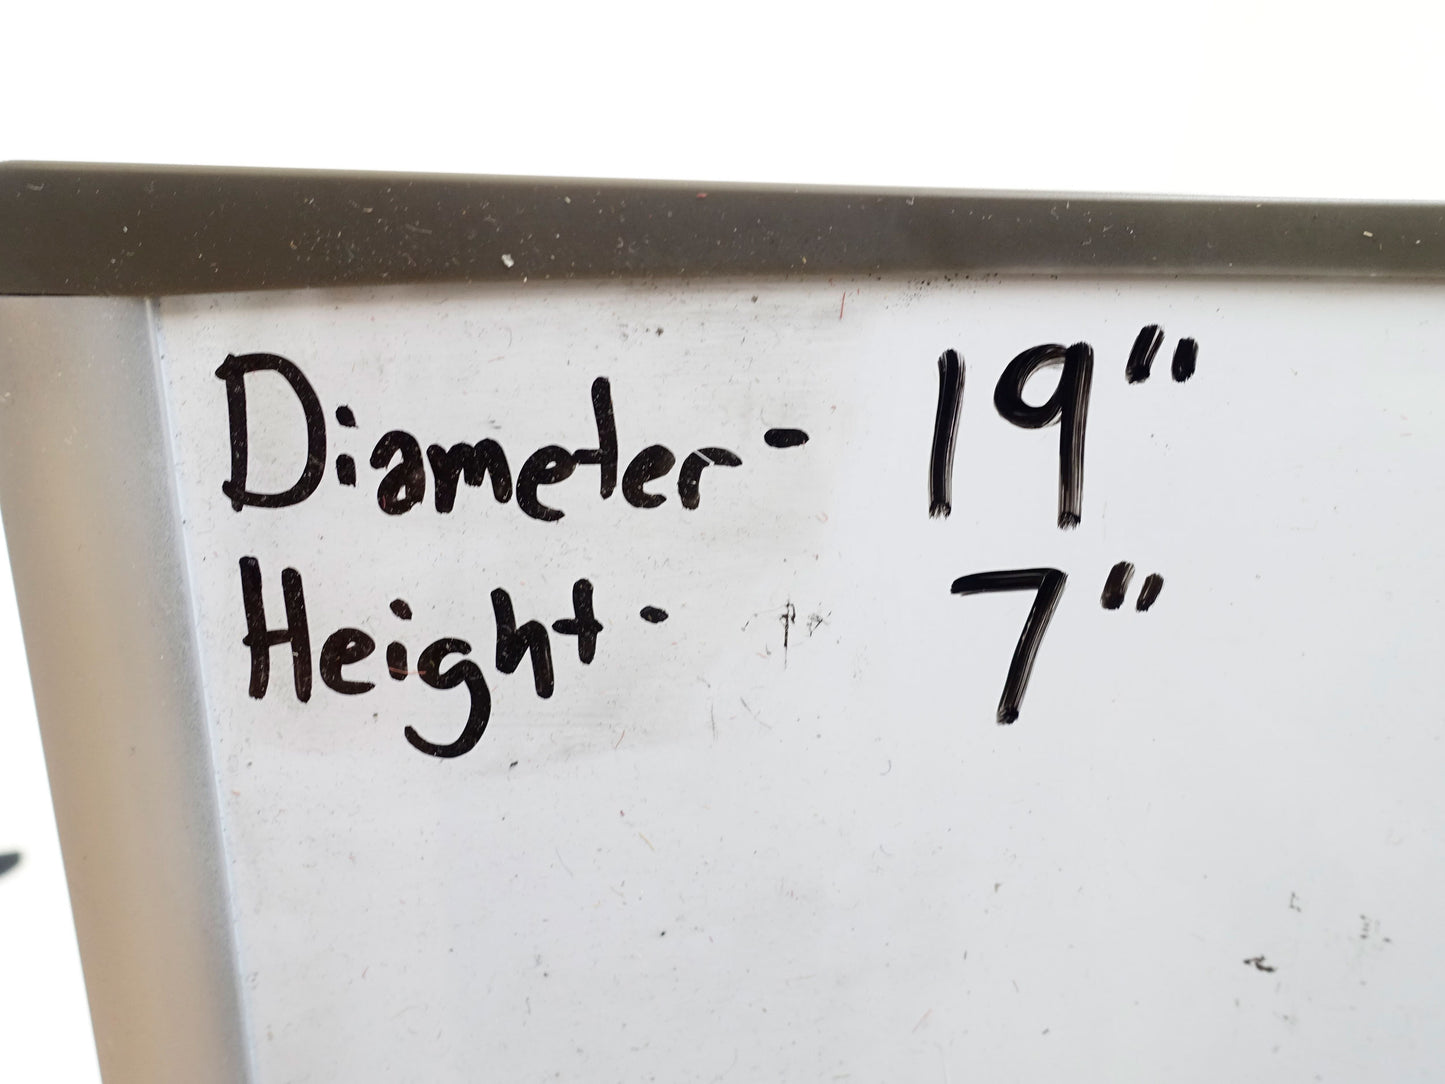 Diameter - 19"
Height - 7"